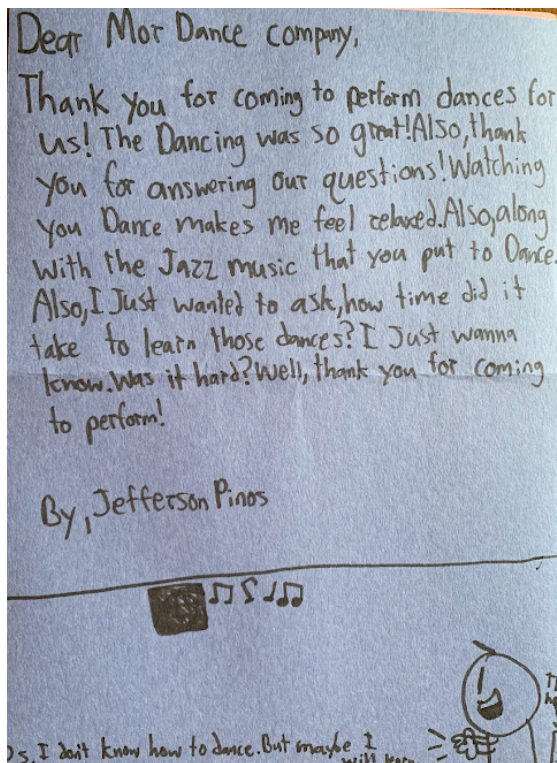 Dear Mor Dance company,
Thank you for coming to perform dances for
us! The Dancing was so great! Also, thank
you for answering our questions! Watching
you Dance makes me feel relaxed. Also, along
with the Jazz music that you put to Dance.
Also, I Just wanted to ask, how time did it
take to learn those dances? I Just wanna
know. Was it hard? Well, thank you for coming
to perform!
By, Jefferson Pinos
Ps. I don't know how to dance. But maybe I
will learn